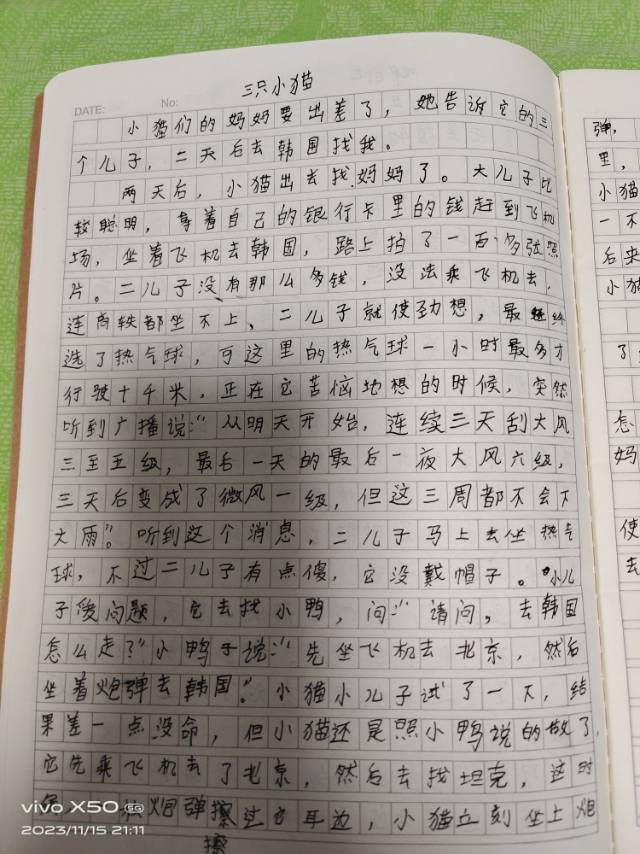 三只小猫
DATE: No:
小猫们的妈妈要出差了，她告诉它的三
个儿子，二天后去韩国找我。
两天后，小猫出去找妈妈了。大儿子比
较聪明，拿着自己的银行卡里的钱赶到飞机
场，坐着飞机去韩国，路上拍了一百多张照
片。二儿子没有那么多钱，没法乘飞机去，
连高铁都坐不上，二儿子就使劲想，最终
选了热气球，可这里的热气球一小时最多才
行驶十千米，正在它苦恼地想的时候，突然
听到广播说：“从明天开始，连续三天刮大风
三至五级，最后一天的最后一夜大风六级，
三天后变成了微风一级，但这三周都不会下
大雨”。听到这个消息，二儿子马上去坐热气
球，不过二儿子有点傻，它没戴帽子。小儿
子傻问题，它去找小鸭，问：“请问，去韩国
怎么走？”小鸭子说：“先坐飞机去北京，然后
坐着炮弹去韩国。”小猫小儿子试了一下，结
果差一点没命，但小猫还是照小鸭说的做了，
它先乘飞机去了北京，然后去找坦克，这时
炮弹擦过它耳边，小猫立刻坐上炮
擦
vivo X50 5G
2023/11/15 21:11
弹，
里，
小猫
一不
后来
小猫
了
怎
妈
使
去